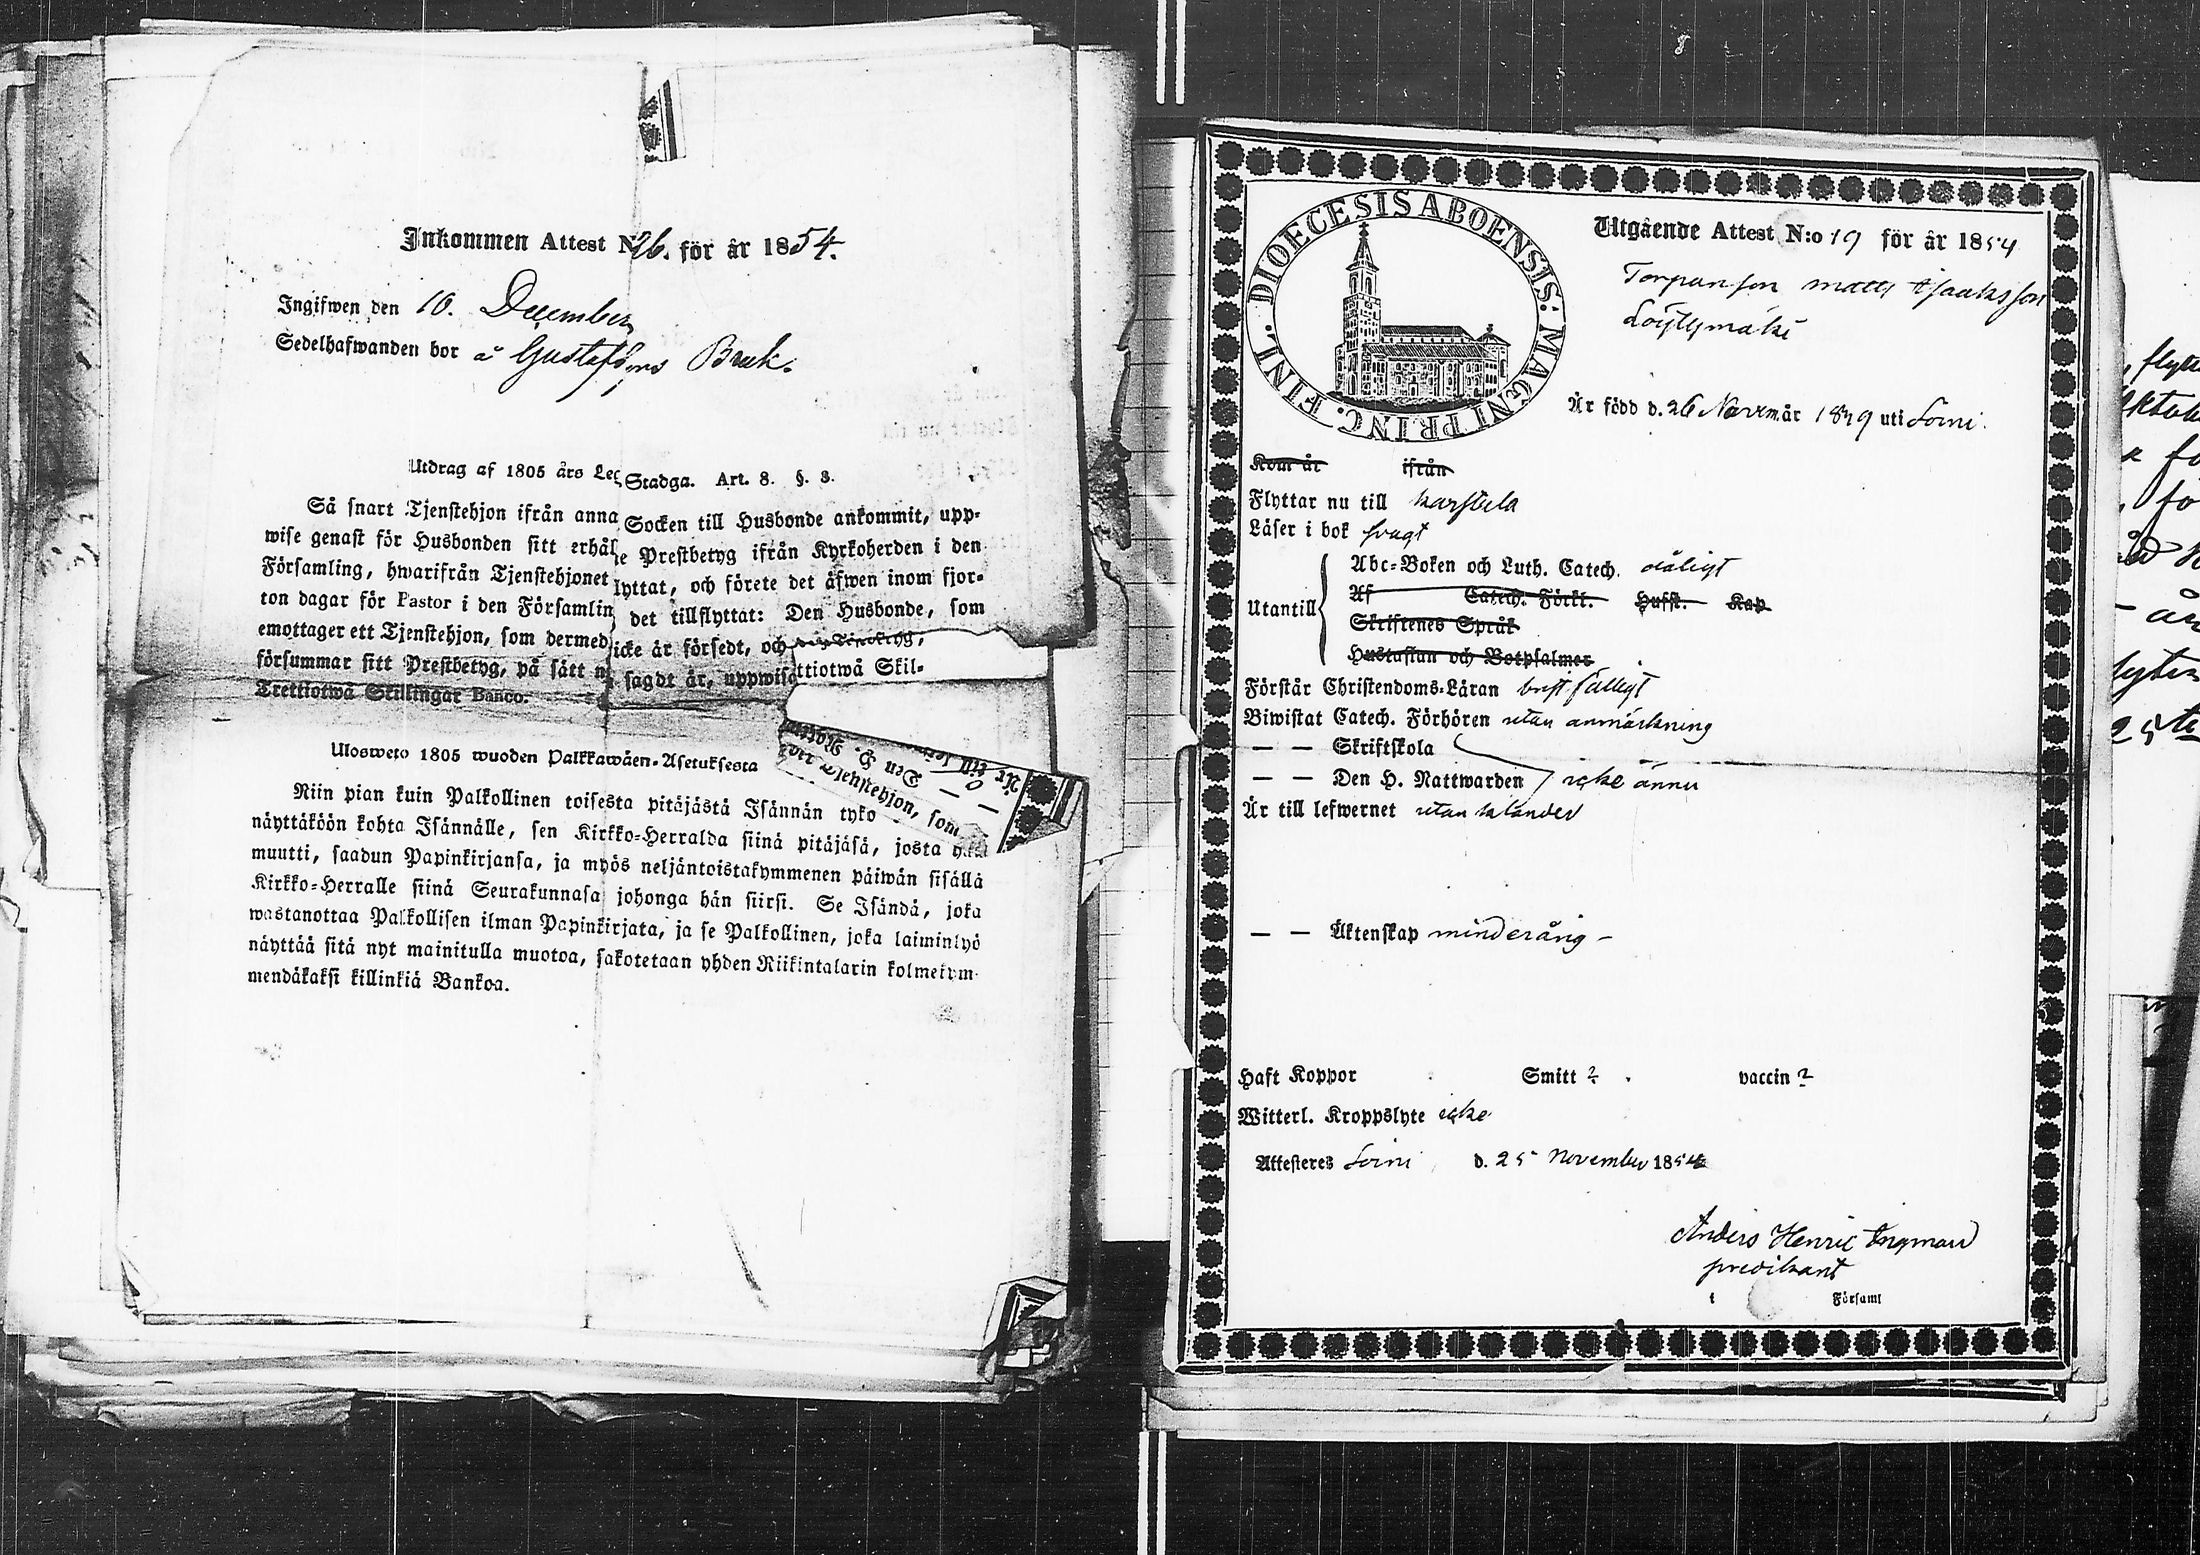 Inkommen Attest N 26. för år 1854.
Ingifwen den 10. December
Sedelhafwanden bor å Gustafsfors Bruk.
Utdrag af 1805 års Leg Stadga. Art. 8. §. 3.
Så snart Tjenstehjon ifrån anna Socken till Husbonde ankommit, upp-
wise genast för Husbonden sitt erhål e Prestbetyg ifrån Kyrkoherden i den
Församling, hwarifrån Tjenstehjonet lyttat, och förete det äfwen inom fjor-
ton dagar för Pastor i den Församlin det tillflyttat: Den Husbonde, som
emottager ett Tjenstehjon, som dermed icke är försedt, och
försummar sitt Prestbetyg, på sätt n sagdt är, uppwisa ttiotwå Skil-
Trettiotwå Skillingar Banco.
Ulosweto 1805 wuoden Palkkawäen-Asetuksesta
Niin pian kuin Palkollinen toisesta pitäjästä Isännän tyko
näyttäköön kohta Isännälle, sen Kirkko-Herralda siinä pitäjäsä, josta
muutti, saadun Papinkirjansa, ja myös neljäntoistakymmenen päiwän sisällä
Kirkko-Herralle siinä Seurakunnasa johonga hän siirsi. Se Isändä, joka
wastanottaa Palkollisen ilman Papinkirjata, ja se Palkollinen, joka laiminlyö
näyttää sitä nyt mainitulla muotoa, sakotetaan yhden Riikintalarin kolmekym-
mendäkaksi killinkiä Bankoa.
Är till
— Den H.
tehjon, som
DIOECESIS ABOENSIS: MAGNI PRINC. FINL.
Utgående Attest N:o 19 för år 1854
Torparson Matts Isaaksson
Löytymäki
Är född d. 26 Novem. år 1839 uti Soini.
Kom år ifrån
Flyttar nu till Karstula
Läser i bok svagt
Utantill
Abc-Boken och Luth. Catech. dåligt
Af Catech. Förkl. Hufst. Kap
Skriftenes Språk
Hustaflan och Botpsalmer
Förstår Christendoms-Läran bristfälligt
Biwistat Catech. Förhören utan anmärkning
— — Skriftskola
— — Den H. Nattwarden icke ännu
Är till lefwernet utan klander
— — Äktenskap minderårig –
Haft Koppor Smitt ? vaccin ?
Witterl. Kroppslyte icke
Attesteres Soini d. 25 November 1854
Anders Henric Ingman
predikant
i Församl